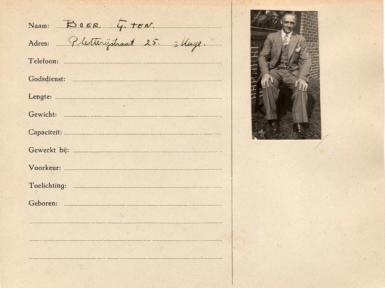 Naam: BOER G. TEN.
Adres: Pletterijstraat 25. Hage.
Telefoon:
Godsdienst:
Lengte:
Gewicht:
Capaciteit:
Gewerkt bij:
Voorkeur:
Toelichting:
Geboren: